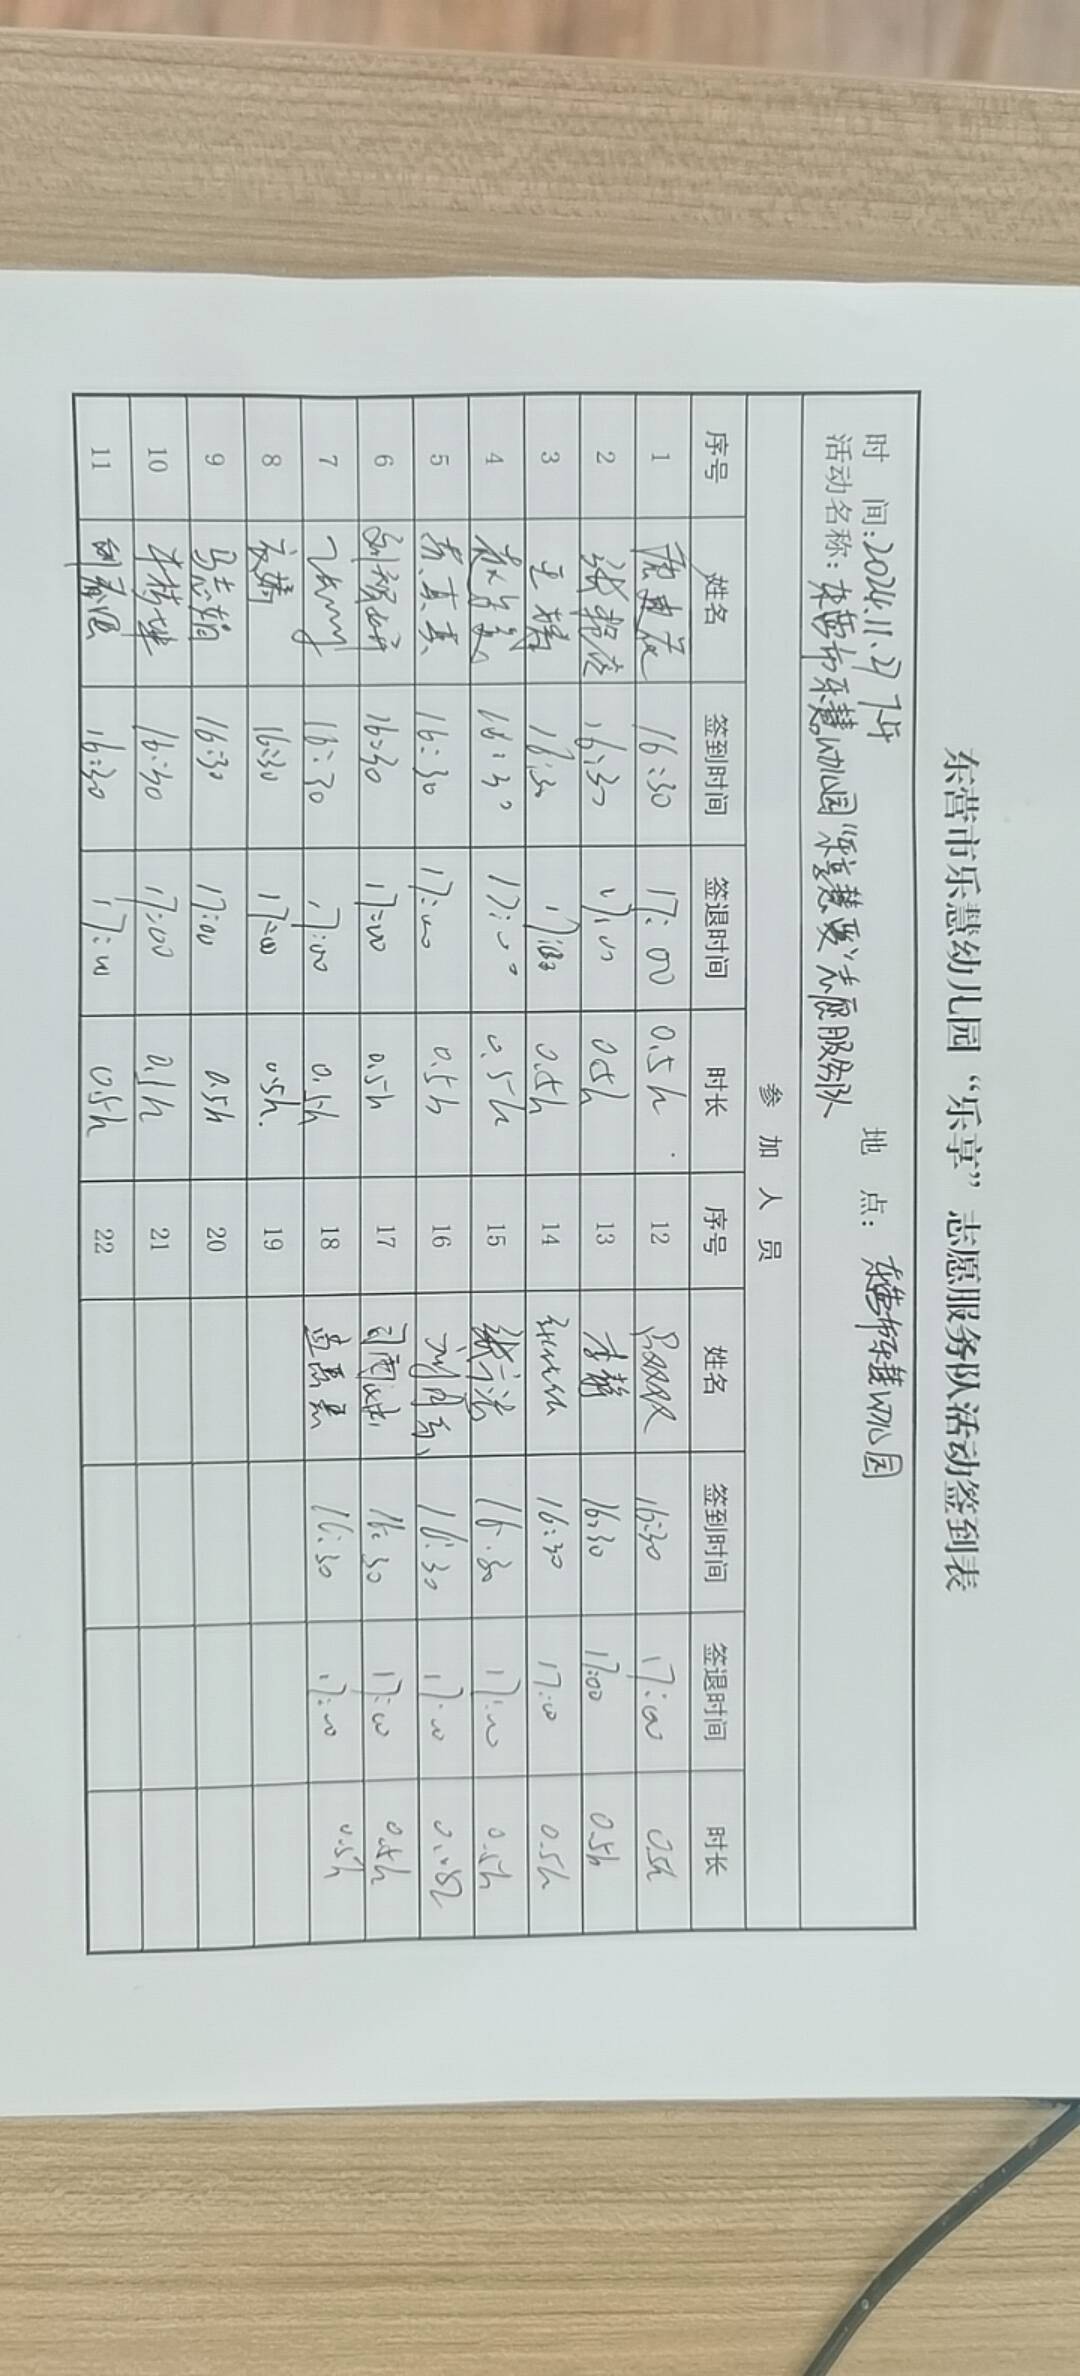 东营市乐慧幼儿园“乐享”志愿服务队活动签到表
时 间:2024.11.27 下午 地 点: 东营市乐慧幼儿园
活动名称: 东营市乐慧幼儿园“乐享慧爱”志愿服务队
参 加 人 员
序号 姓名 签到时间 签退时间 时长 序号 姓名 签到时间 签退时间 时长
1 16:30 17:00 0.5h 12 吕双双 16:30 17:00 0.5h
2 16:30 17:00 0.5h 13 李静 16:30 17:00 0.5h
3 王婧 16:30 17:00 0.5h 14 16:30 17:00 0.5h
4 16:30 17:00 0.5h 15 16:30 17:00 0.5h
5 苏真真 16:30 17:00 0.5h 16 16:30 17:00
6 16:30 17:00 0.5h 17 16:30 17:00 0.5h
7 16:30 17:00 0.5h 18 孟磊磊 16:30 17:00 0.5h
8 16:30 17:00 0.5h. 19
9 马志娟 16:30 17:00 0.5h 20
10 16:30 17:00 0.5h 21
11 16:30 17:00 0.5h 22